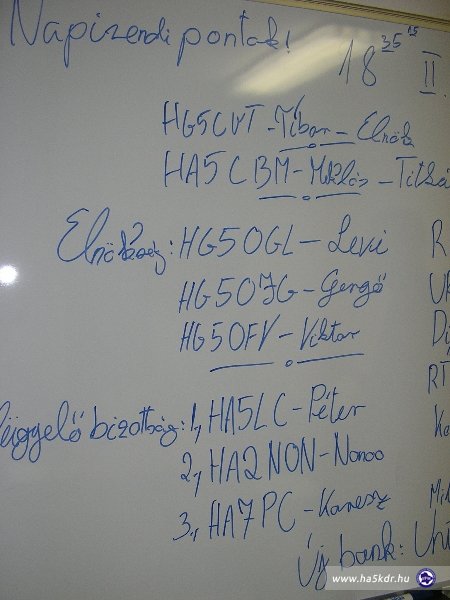 Napirendi pontok!
18 35 II.
HG5CVT - Tibor - Elnök
HA5CBM - Miklós - Titká
Elnökség: HG5OGL - Levi
HG5OJG - Gergő
HG5OFV - Viktor
ügyelő bizottság: 1., HA5LC - Péter
2., HA2NON - Nonoo
3., HA7PC - Karesz
Új bank: Uni
www.ha5kdr.hu